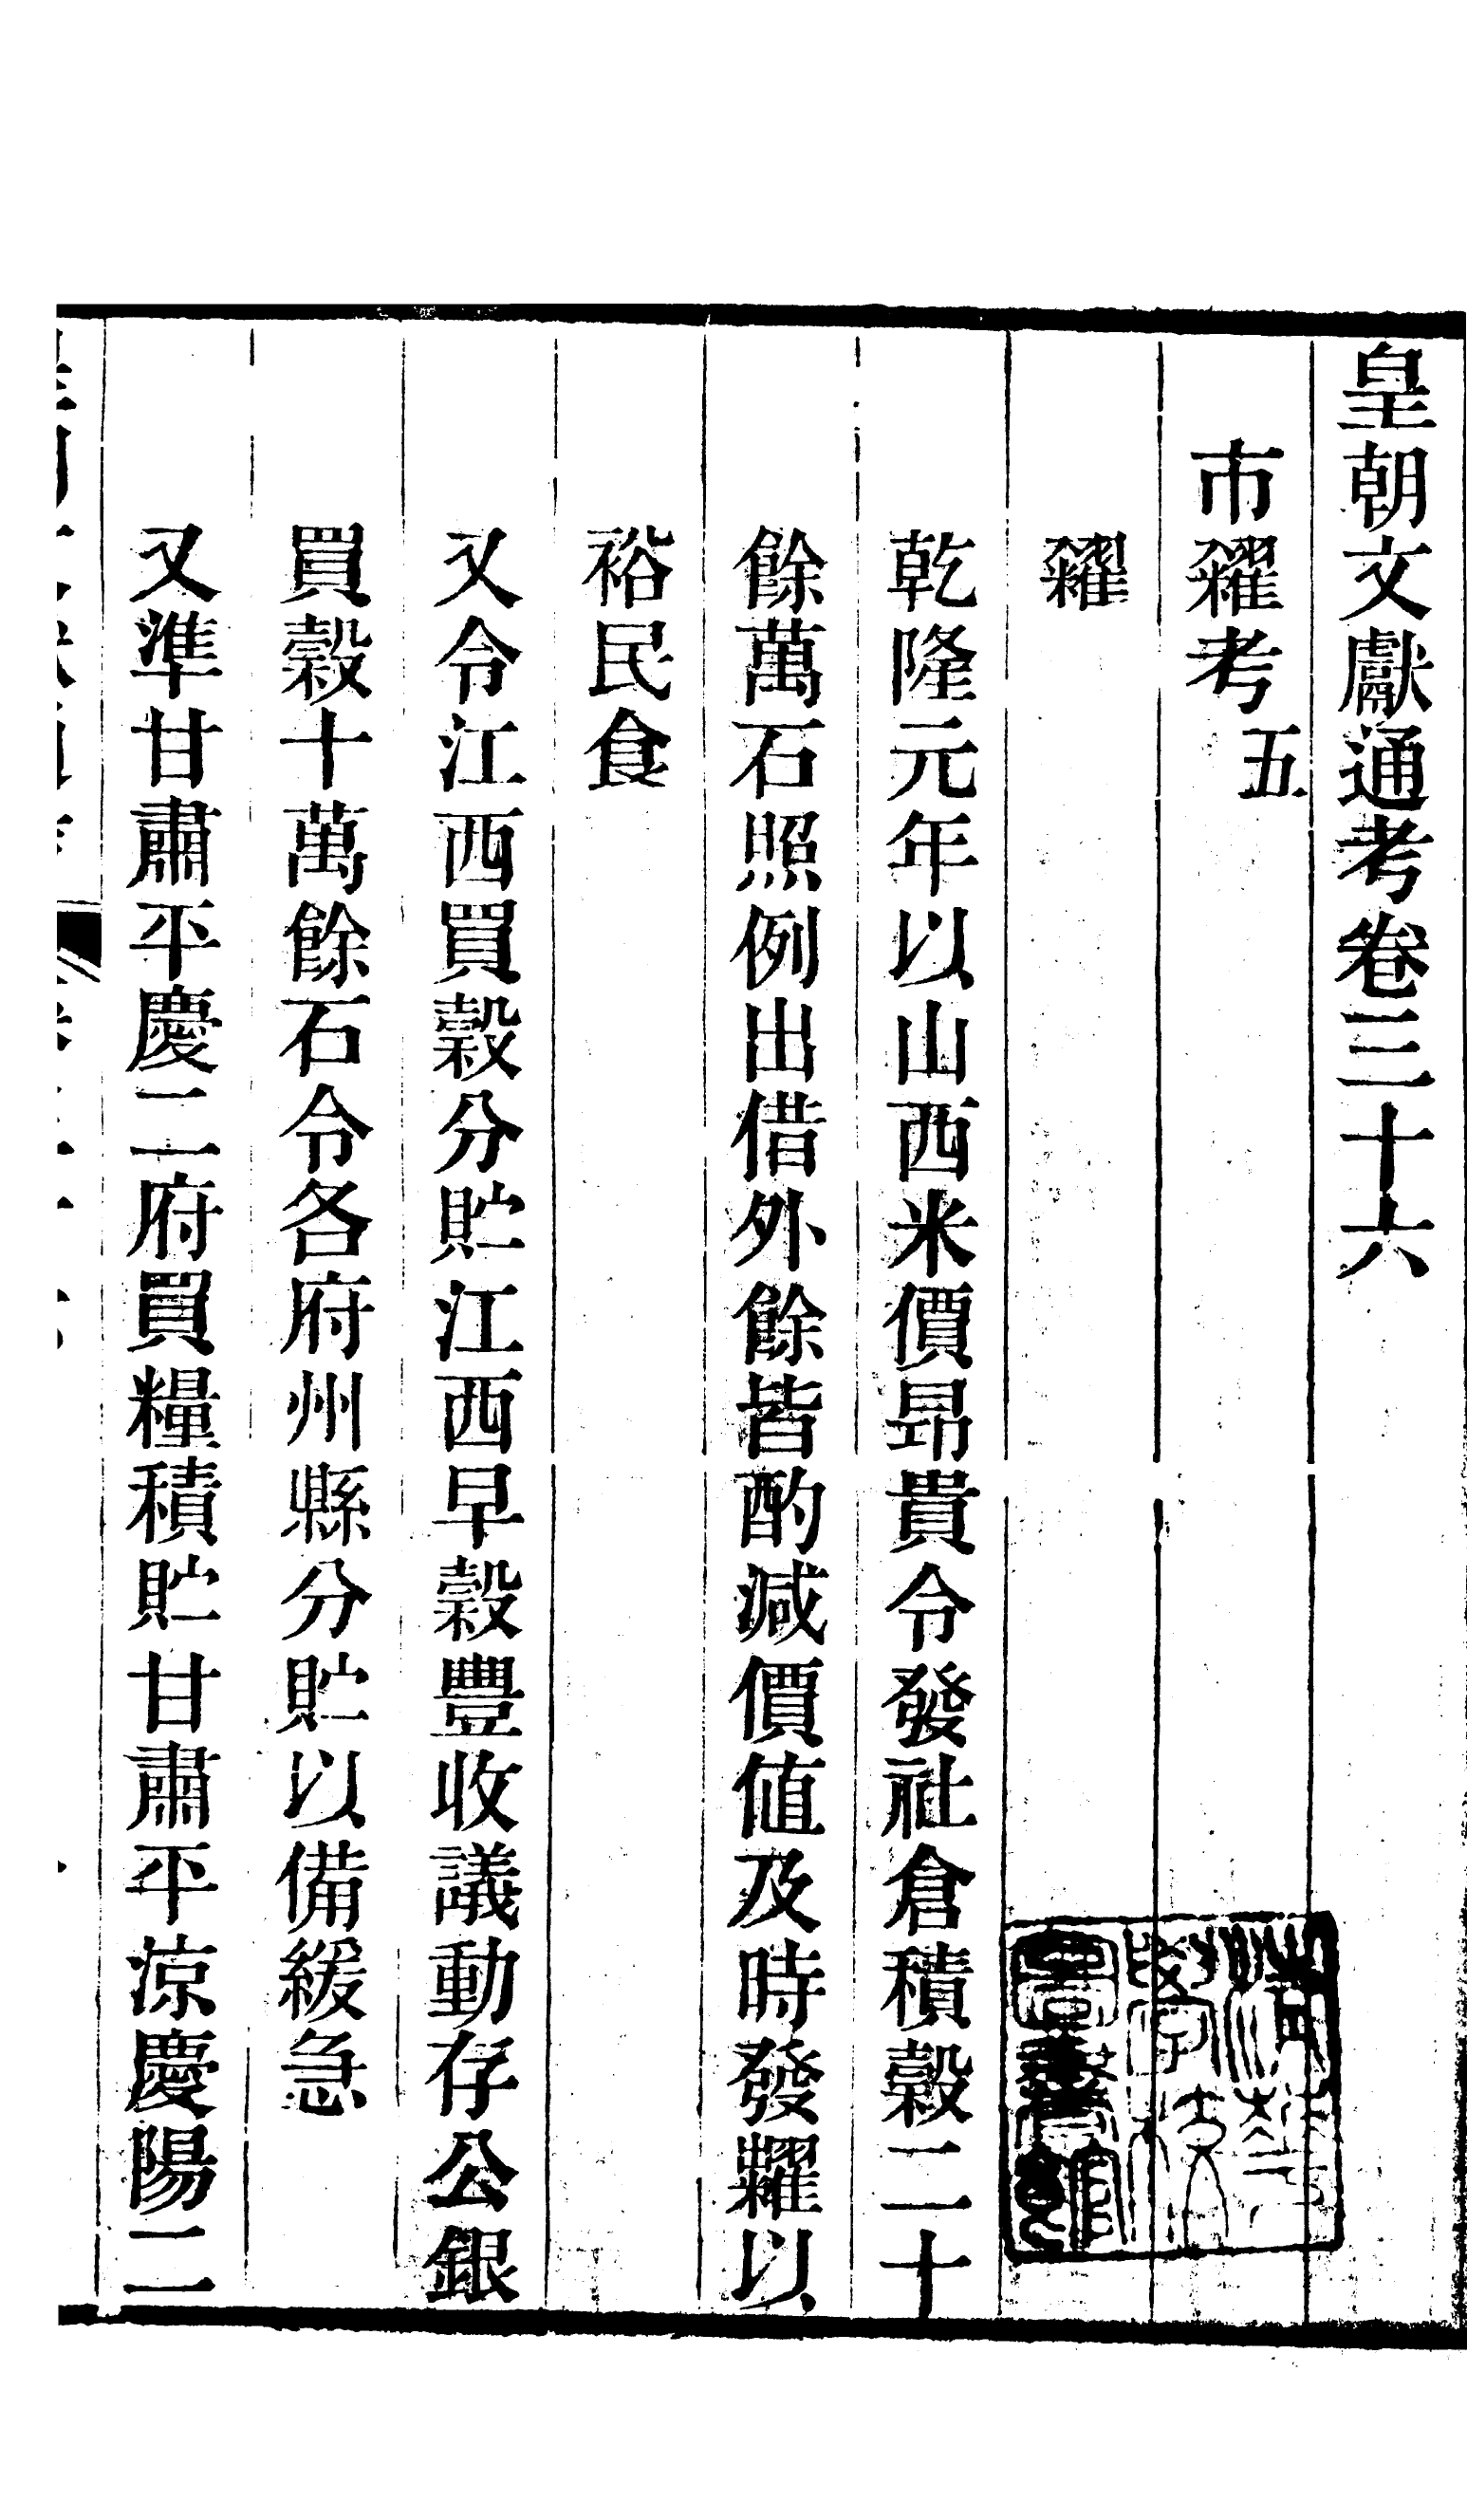 皇朝文獻通考卷三十六
市糴考五
糴
乾隆元年以山西米價昻貴令發社倉積穀二十
餘萬石照例出借外餘皆酌減價値及時發糶以
裕民食
又令江西買穀分貯江西早穀豐收議動存公銀
買穀十萬餘石令各府州縣分貯以備緩急
又準甘肅平慶二府買糧積貯甘肅平涼慶陽二